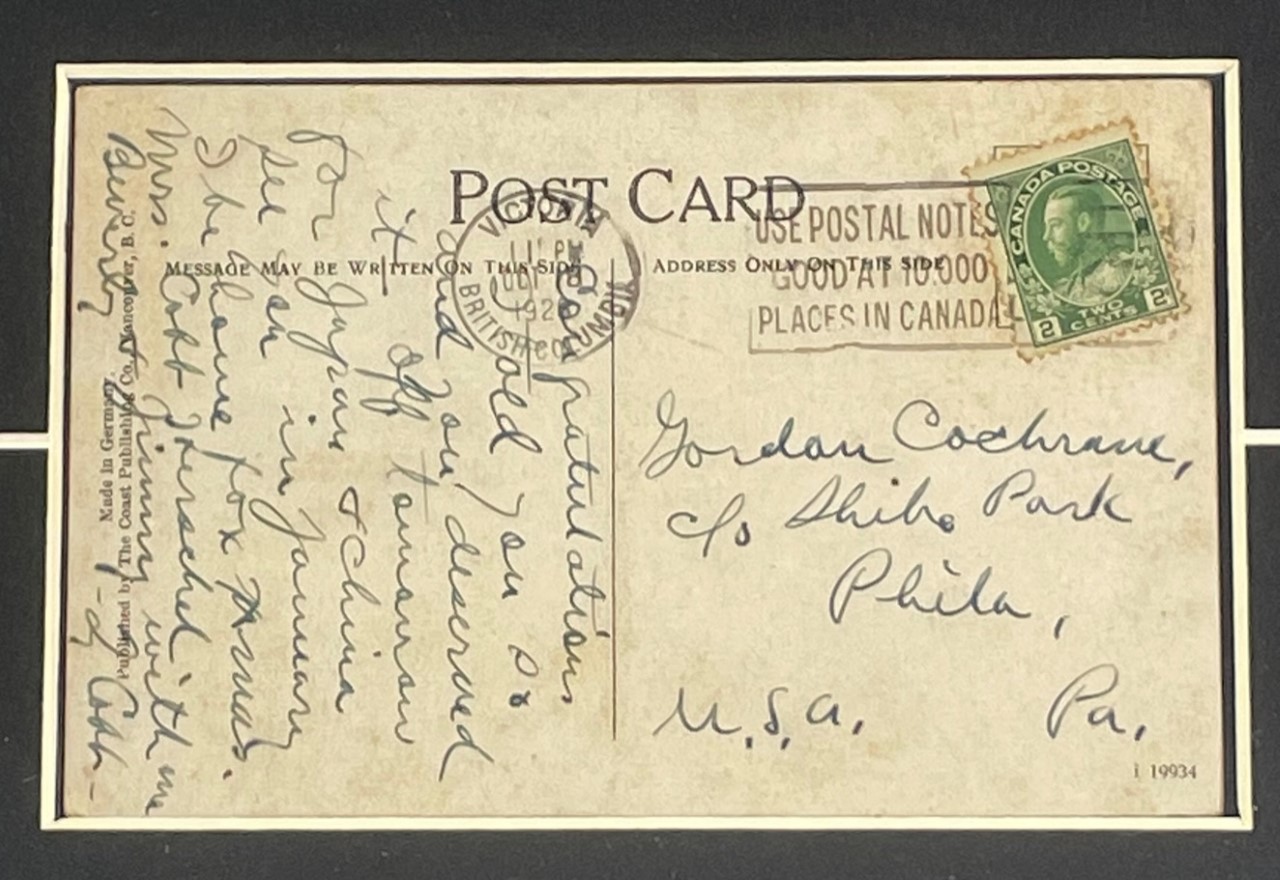 POST CARD
MESSAGE MAY BE WRITTEN ON THIS SIDE
ADDRESS ONLY ON THIS SIDE
VICTORIA
PM
192
BRITISH COLUMBIA
USE POSTAL NOTES
GOOD AT 10.000
PLACES IN CANADA
CANADA POSTAGE
2 TWO CENTS 2
Congratulations
told you so
and you deserved
it off tomorrow
for Japan & China
see you in January
Shibe Fox
Mrs. Cobb Herschel
Beverly & Jimmy with me
-Ty Cobb-
Made in Germany.
Published by The Coast Publishing Co., Vancouver, B. C.
Gordon Cochrane,
c/o Shibe Park
Phila,
Pa.
U.S.A.
i 19934